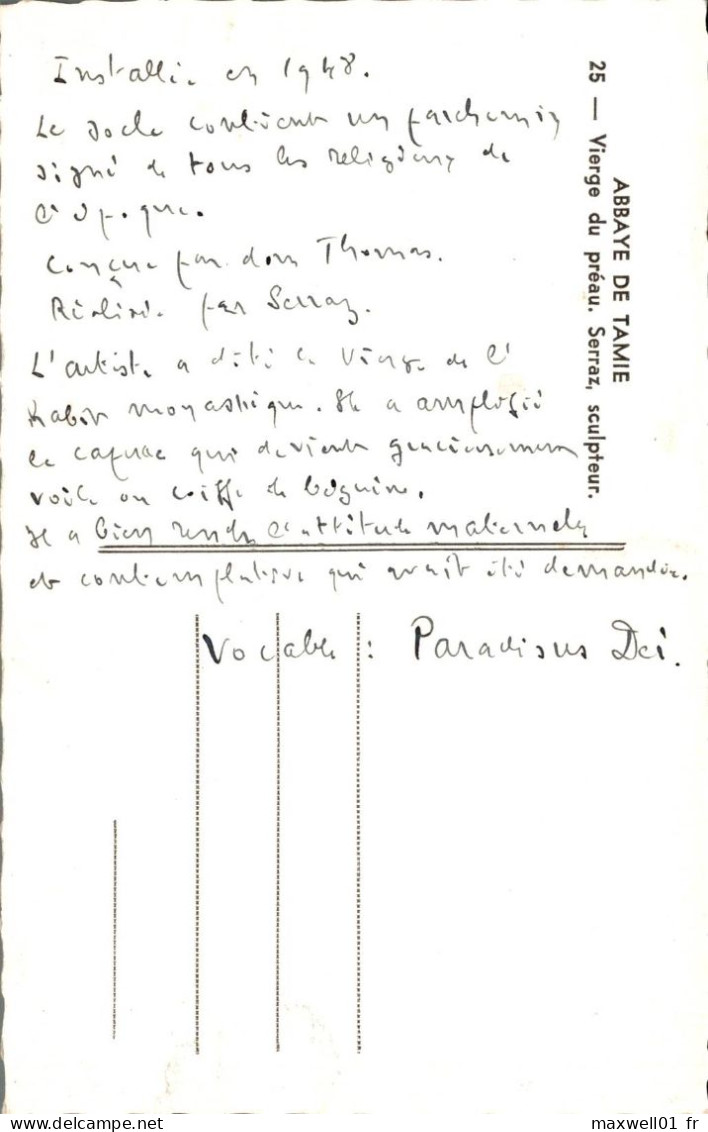 Installée en 1948.
Le socle contient un parchemin
signé de tous les religieux de
l'époque.
Conçue par dom Thomas.
Réalisée par Serraz.
L'artiste a vêtu la Vierge de l'
habit monastique. Il a amplifié
le capuce qui devient gracieusement
voile ou coiffe de béguine.
Il a bien rendu l'attitude maternelle
et contemplative qui avait été demandée.
Vocable : Paradisus Dei.
ABBAYE DE TAMIE
25 — Vierge du préau. Serraz, sculpteur.
maxwell01 fr